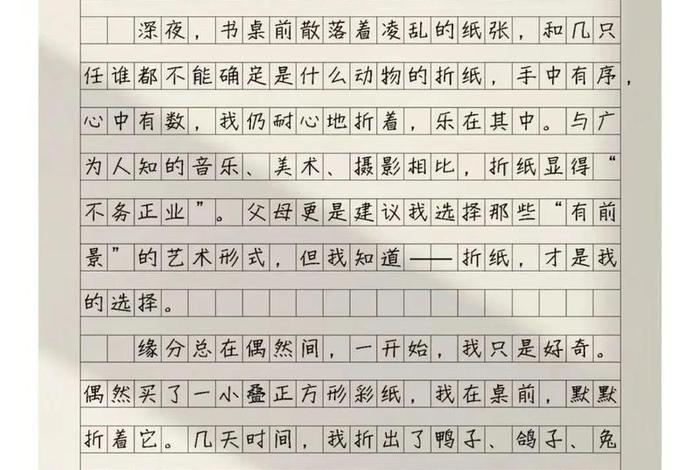 深夜，书桌前散落着凌乱的纸张，和几只
任谁都不能确定是什么动物的折纸，手中有序，
心中有数，我仍耐心地折着，乐在其中。与广
为人知的音乐、美术、摄影相比，折纸显得“
不务正业”。父母更是建议我选择那些“有前
景”的艺术形式，但我知道——折纸，才是我
的选择。
缘分总在偶然间，一开始，我只是好奇。
偶然买了一小叠正方形彩纸，我在桌前，默默
折着它。几天时间，我折出了鸭子、鸽子、兔